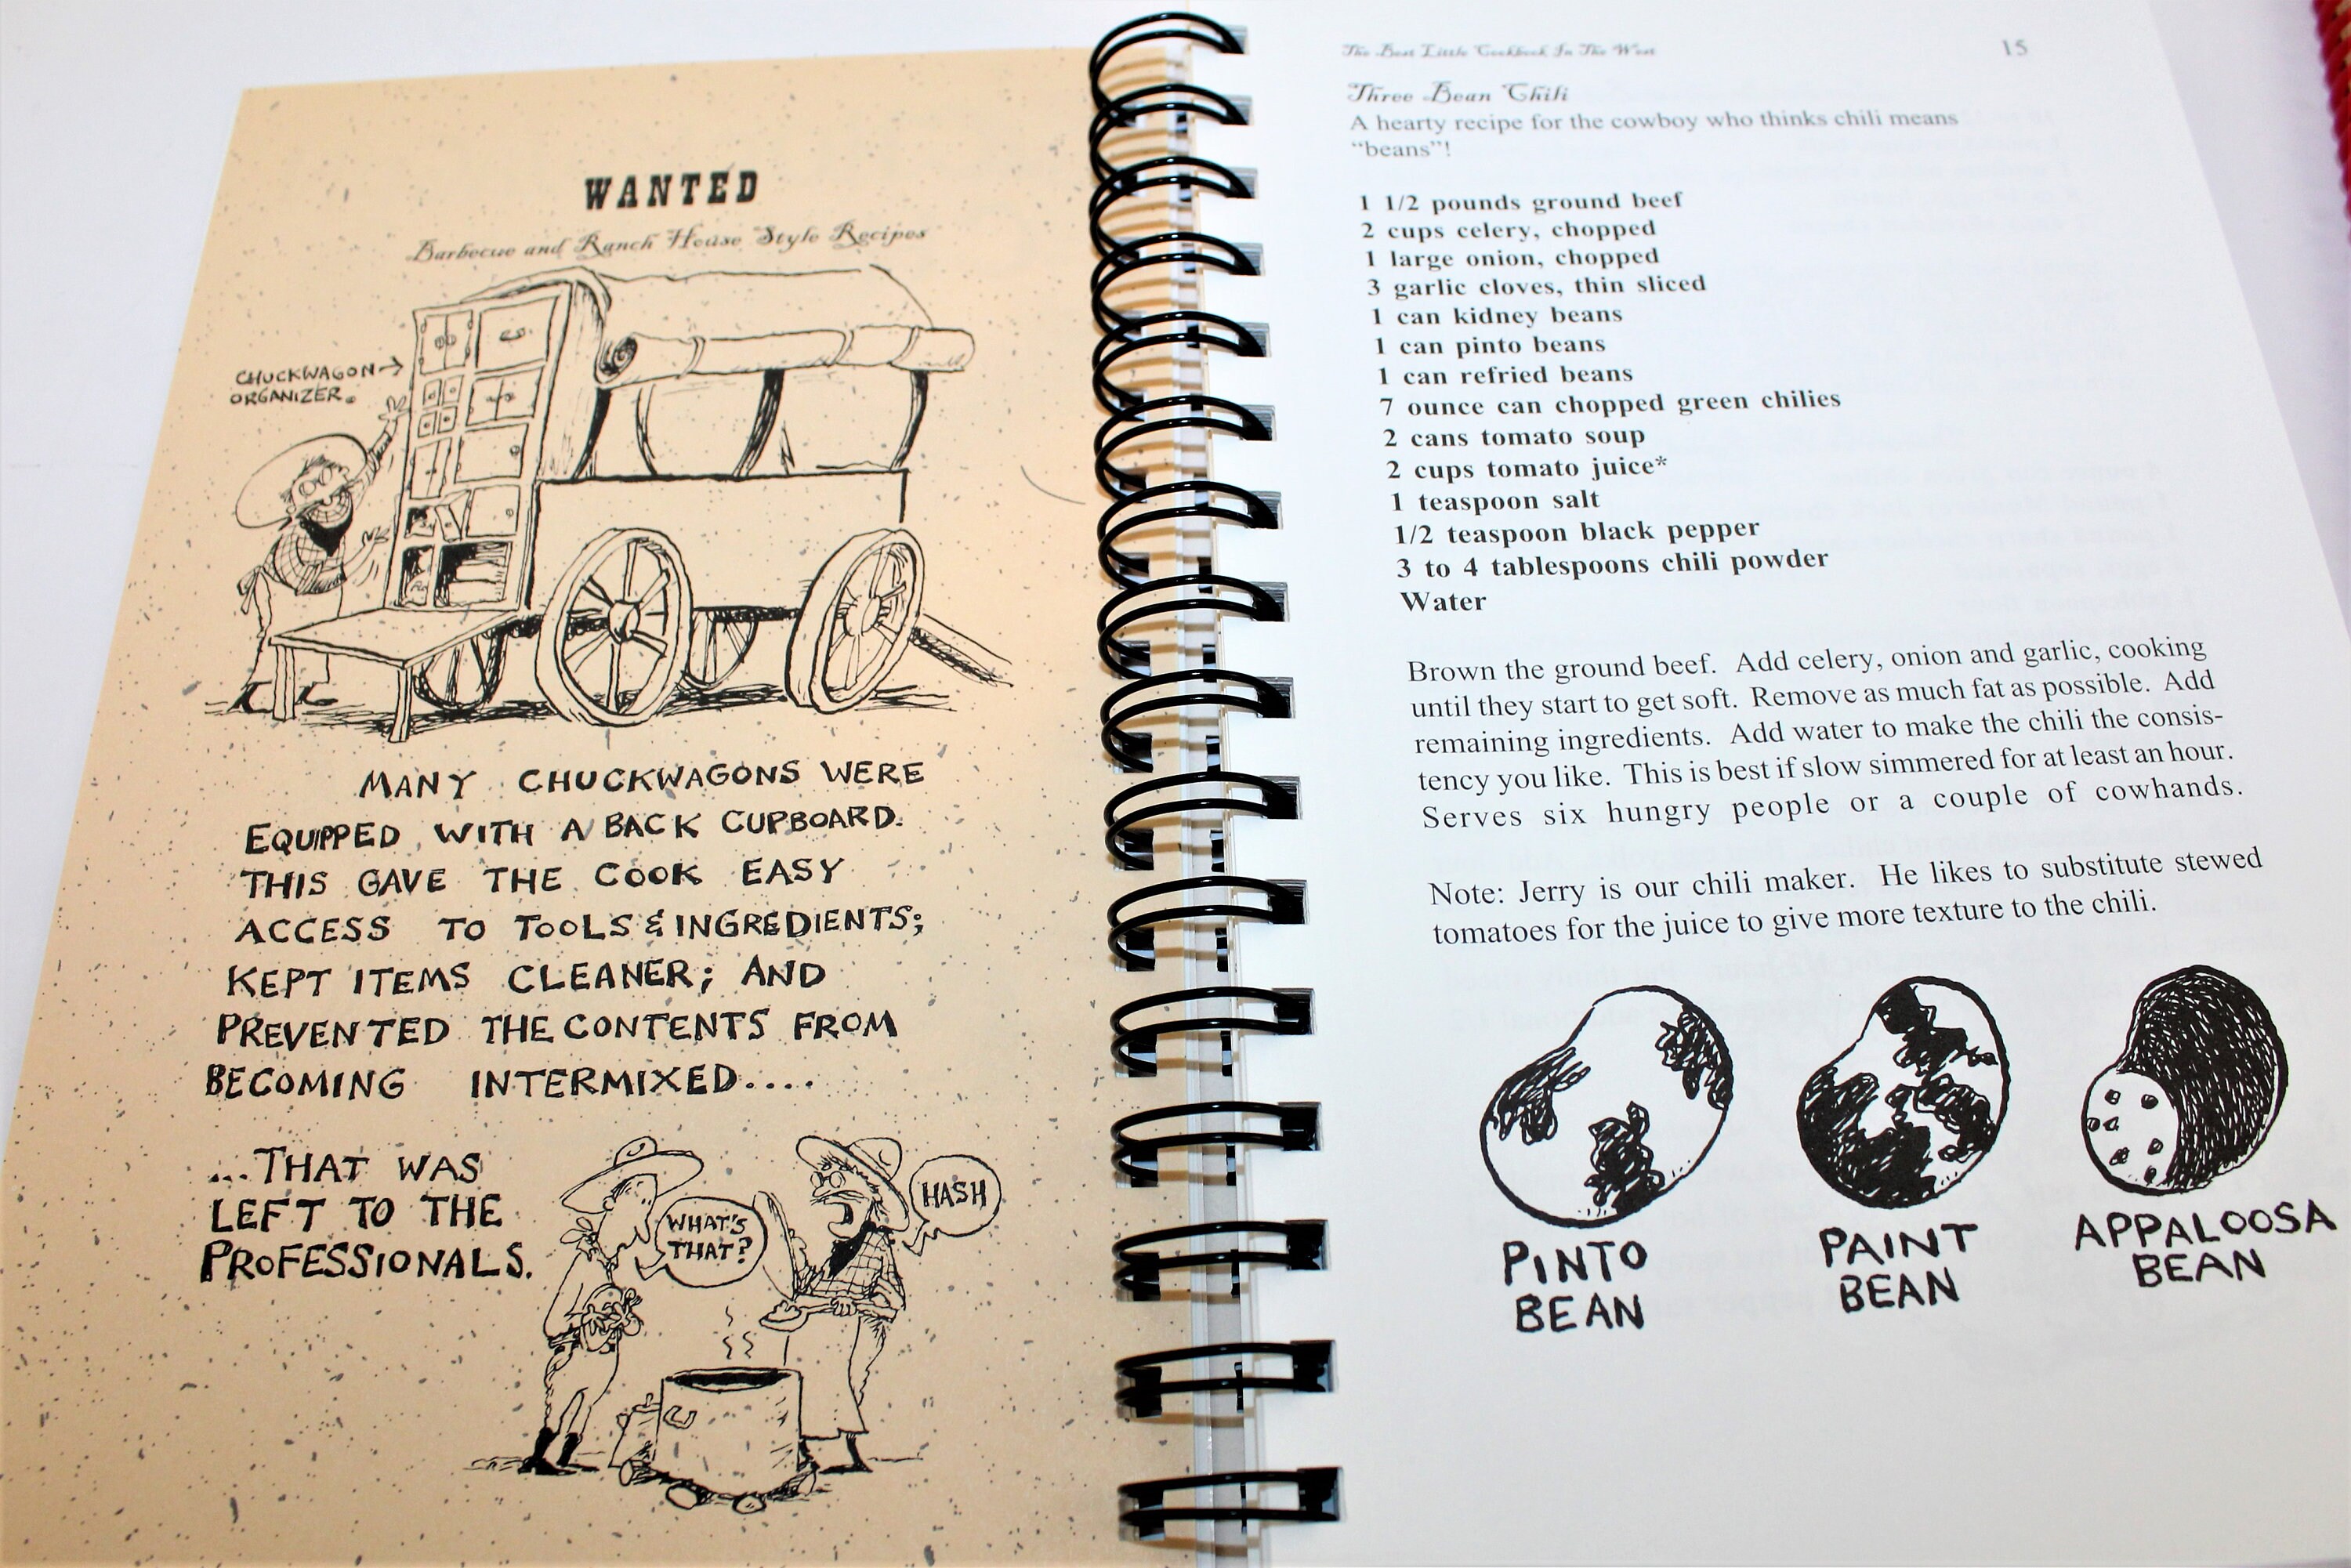 WANTED
Barbecue and Ranch House Style Recipes
CHUCKWAGON →
ORGANIZER.
MANY CHUCKWAGONS WERE
EQUIPPED WITH A BACK CUPBOARD.
THIS GAVE THE COOK EASY
ACCESS TO TOOLS & INGREDIENTS;
KEPT ITEMS CLEANER; AND
PREVENTED THE CONTENTS FROM
BECOMING INTERMIXED....
...THAT WAS
LEFT TO THE
PROFESSIONALS.
WHAT'S
THAT?
HASH
The Best Little Cookbook In The West 15
Three Bean Chili
A hearty recipe for the cowboy who thinks chili means
“beans”!
1 1/2 pounds ground beef
2 cups celery, chopped
1 large onion, chopped
3 garlic cloves, thin sliced
1 can kidney beans
1 can pinto beans
1 can refried beans
7 ounce can chopped green chilies
2 cans tomato soup
2 cups tomato juice*
1 teaspoon salt
1/2 teaspoon black pepper
3 to 4 tablespoons chili powder
Water
Brown the ground beef. Add celery, onion and garlic, cooking
until they start to get soft. Remove as much fat as possible. Add
remaining ingredients. Add water to make the chili the consis-
tency you like. This is best if slow simmered for at least an hour.
Serves six hungry people or a couple of cowhands.
Note: Jerry is our chili maker. He likes to substitute stewed
tomatoes for the juice to give more texture to the chili.
PINTO
BEAN
PAINT
BEAN
APPALOOSA
BEAN